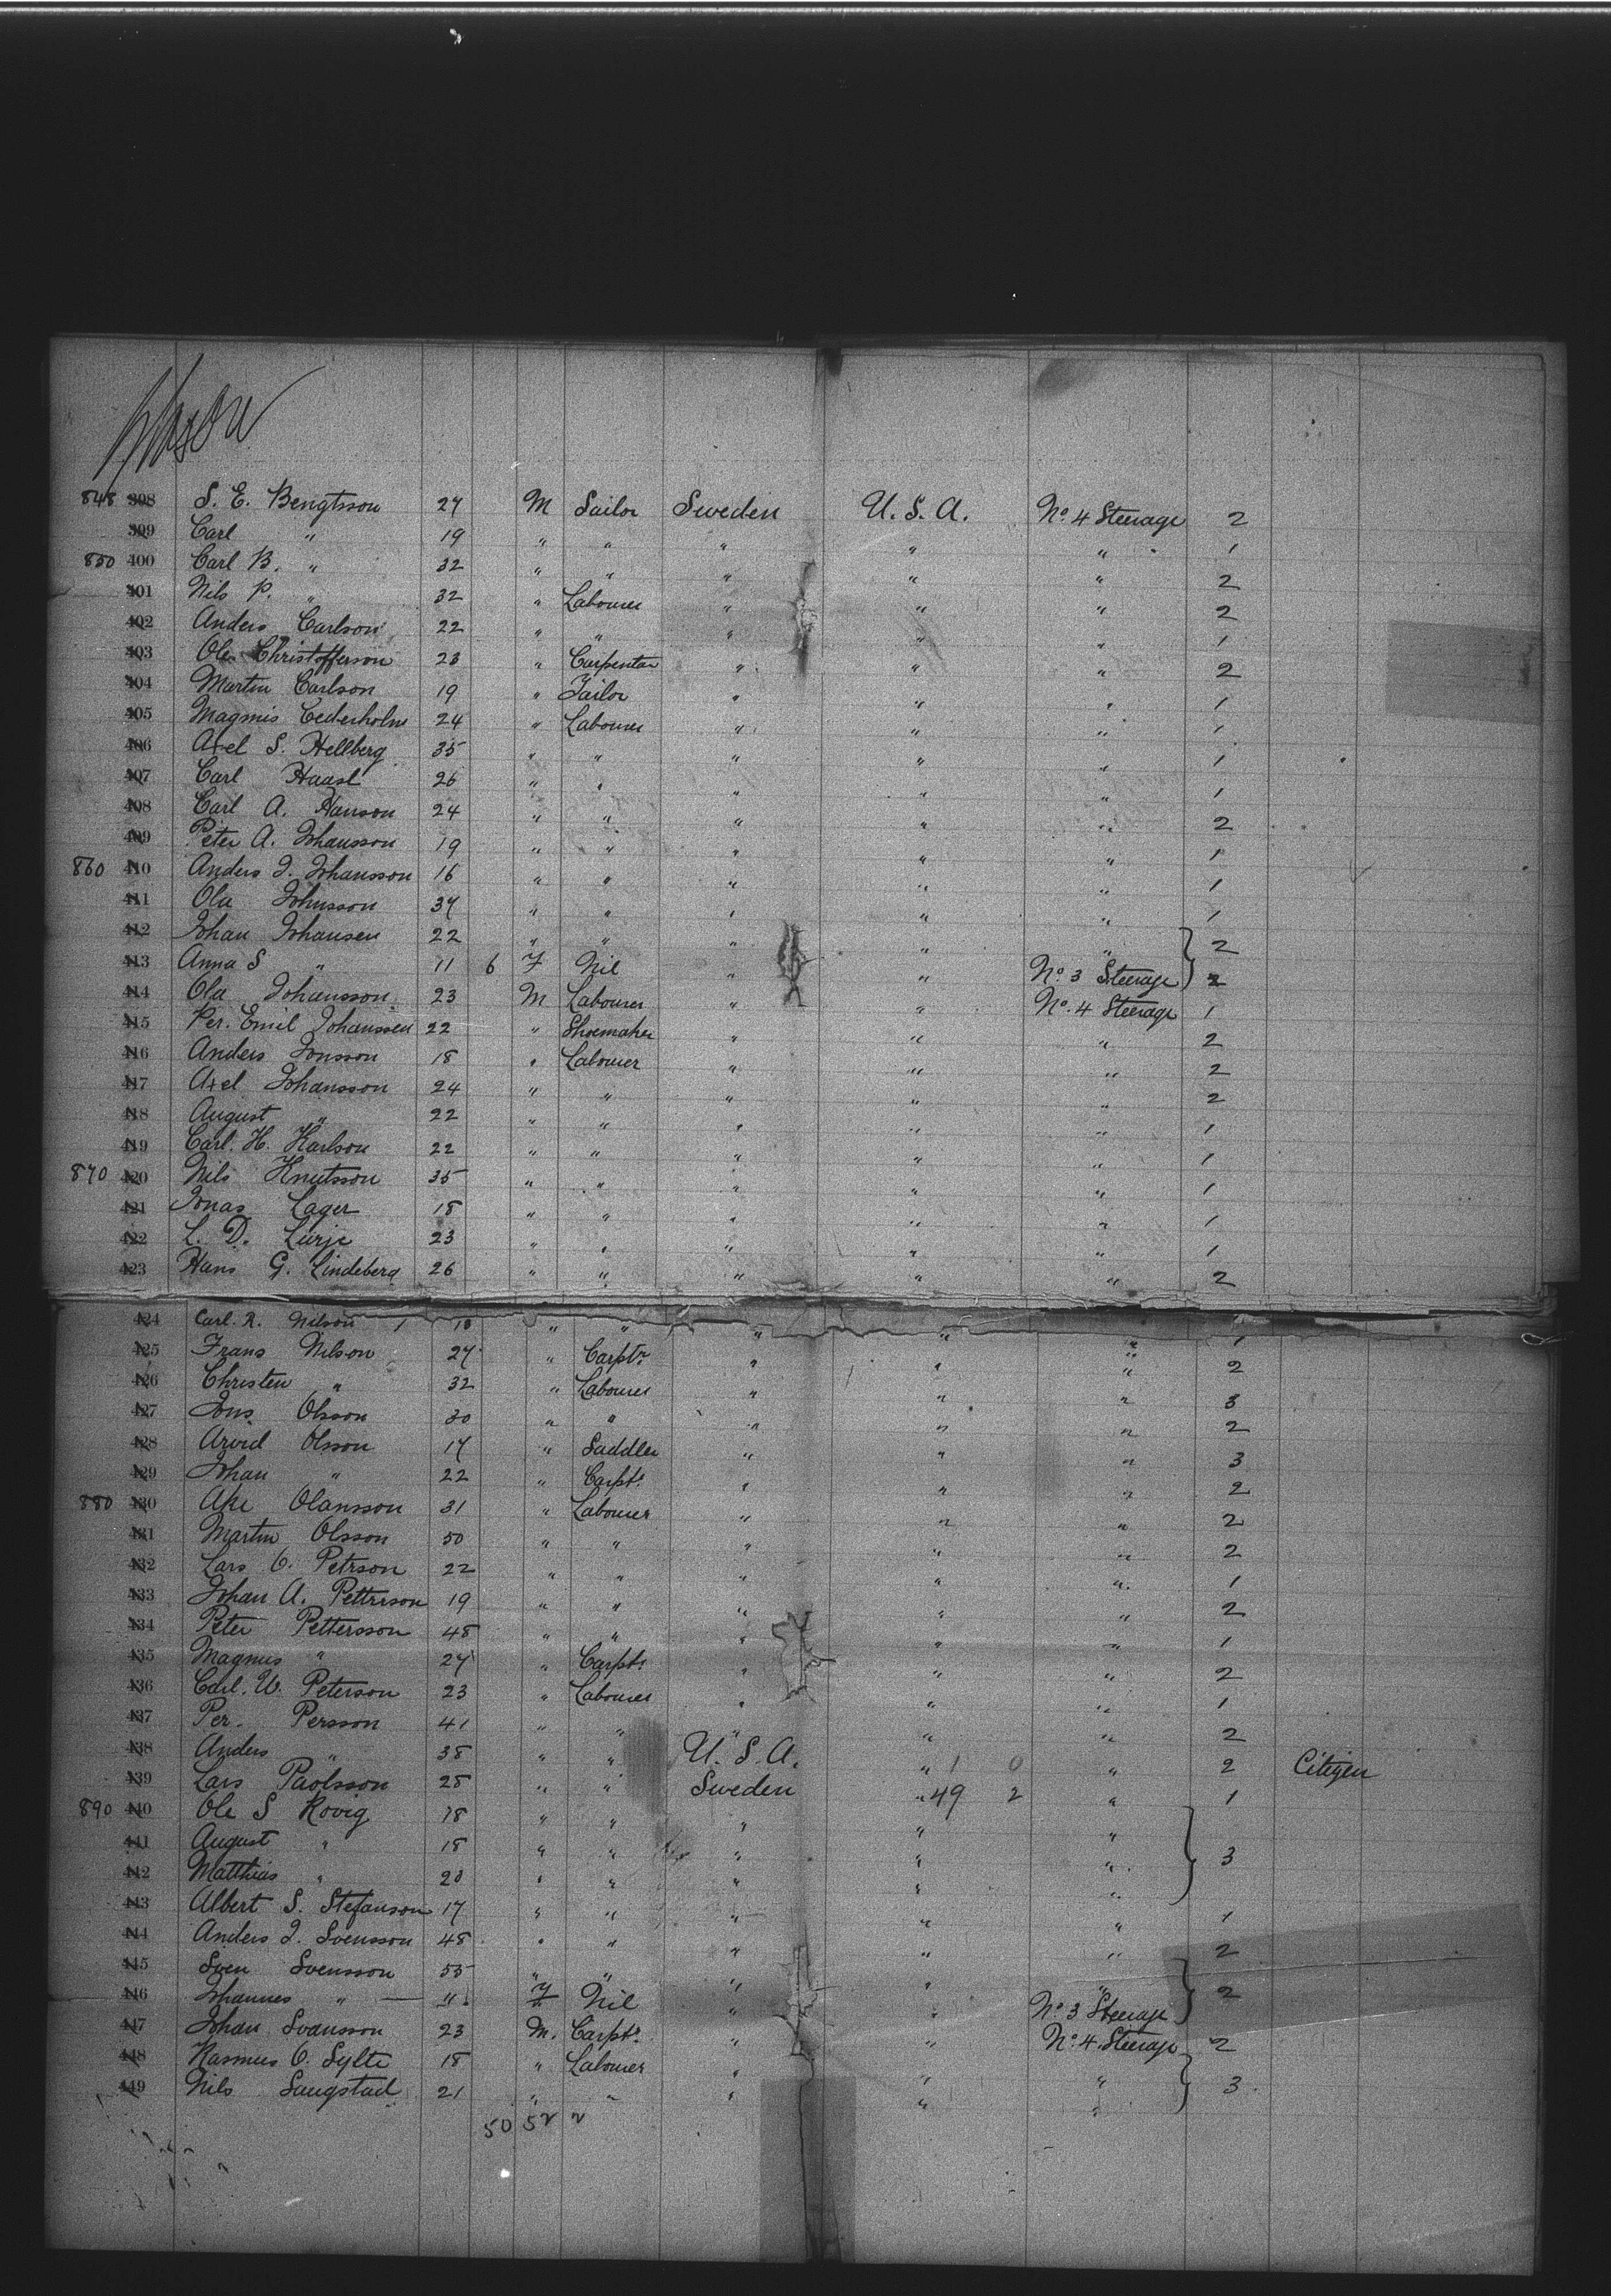 848 398 S. E. Bengtsson 27 M Sailor Sweden U. S. A. No. 4 Steerage 2
399 Carl " 19 " " " " " 1
850 400 Carl B. " 32 " " " " " 2
401 Nils P. " 32 " Labourer " " " 2
402 Anders Carlson 22 " " " " " 1
403 Ole Christofferson 23 " Carpenter " " " 2
404 Martin Carlson 19 " Tailor " " " 1
405 Magnus Cederholm 24 " Labourer " " " 1
406 Axel S. Hellberg 35 " " " " " 1
407 Carl Haasl 26 " " " " " 1
408 Carl A. Hanson 24 " " " " " 2
409 Peter A. Johansson 19 " " " " " 1
860 410 Anders J. Johansson 16 " " " " " 1
411 Ola Johnsson 37 " " " " " 1
412 Johan Johansen 22 " " " " " 2
413 Anna S " 11 6 F Nil " " No. 3 Steerage 2
414 Ola Johansson 23 M Labourer " " No. 4 Steerage 1
415 Per. Emil Johanssen 22 " Shoemaker " " " 2
416 Anders Jonsson 18 " Labourer " " " 2
417 Axel Johansson 24 " " " " " 2
418 August " 22 " " " " " 1
419 Carl. H. Karlson 22 " " " " " 1
870 420 Nils Knutsson 35 " " " " " 1
421 Jonas Lager 18 " " " " " 1
422 L. D. Lurje 23 " " " " " 1
423 Hans G. Lindeberg 26 " " " " " 2
424 Carl. R. Nilson 18 " " " " " 1
425 Frans Nilson 27 " Carptr. " " " 2
426 Christen " 32 " Labourer " " " 3
427 Jons Olsson 30 " " " " " 2
428 Arvid Olsson 17 " Saddler " " " 3
429 Johan " 22 " Carptr. " " " 2
880 430 Ake Olansson 31 " Labourer " " " 2
431 Martin Olsson 50 " " " " " 2
432 Lars O. Petrson 22 " " " " " 1
433 Johan A. Pettrrson 19 " " " " " 2
434 Peter Pettersson 48 " " " " " 1
435 Magnus " 27 " Carptr. " " " 2
436 Carl. W. Peterson 23 " Labourer " " " 1
437 Per. Persson 41 " " " " " 2
438 Anders " 38 " " U. S. A. " 1 0 " 2 Citizen
439 Lars Paolsson 28 " " Sweden " 49 2 " 1
890 440 Ole S Rovig 18 " " " " "
441 August " 18 " " " " " 3
442 Matthias " 20 " " " " "
443 Albert S. Stefanson 17 " " " " " 1
444 Anders J. Svensson 48 " " " " " 2
445 Sven Svensson 55 " " " " " 2
446 Johannes " 11 F Nil " " No. 3 Steerage
447 Johan Svansson 23 M. Carptr. " " No. 4. Steerage 2
448 Rasmus O. Sylte 18 " Labourer " " " 3
449 Nils Saugstad 21 " " " " "
50 52 2